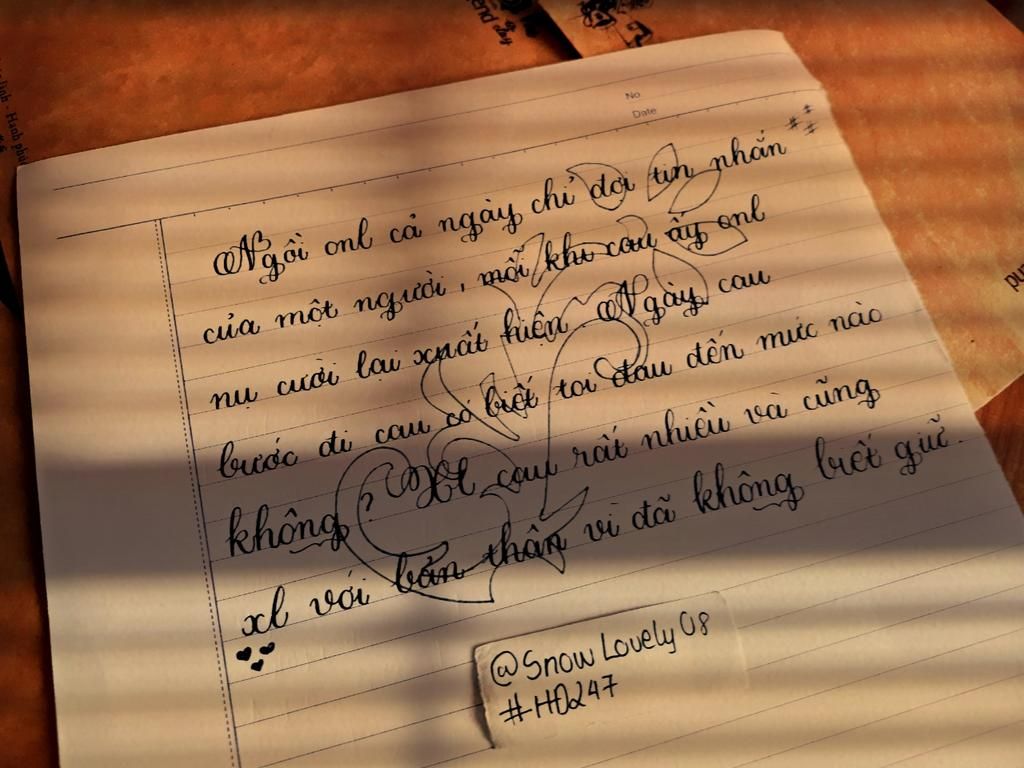 No
Date
Ngồi onl cả ngày chỉ đợi tin nhắn
của một người, mỗi khi cau ấy onl
nụ cười lại xuất hiện. Ngày cau
bước đi cau có biết toi đau đến mức nào
không? Xl cau rất nhiều và cũng
xl với bản thân vì đã không biết giữ.
@Snow Lovely 08
#HD247